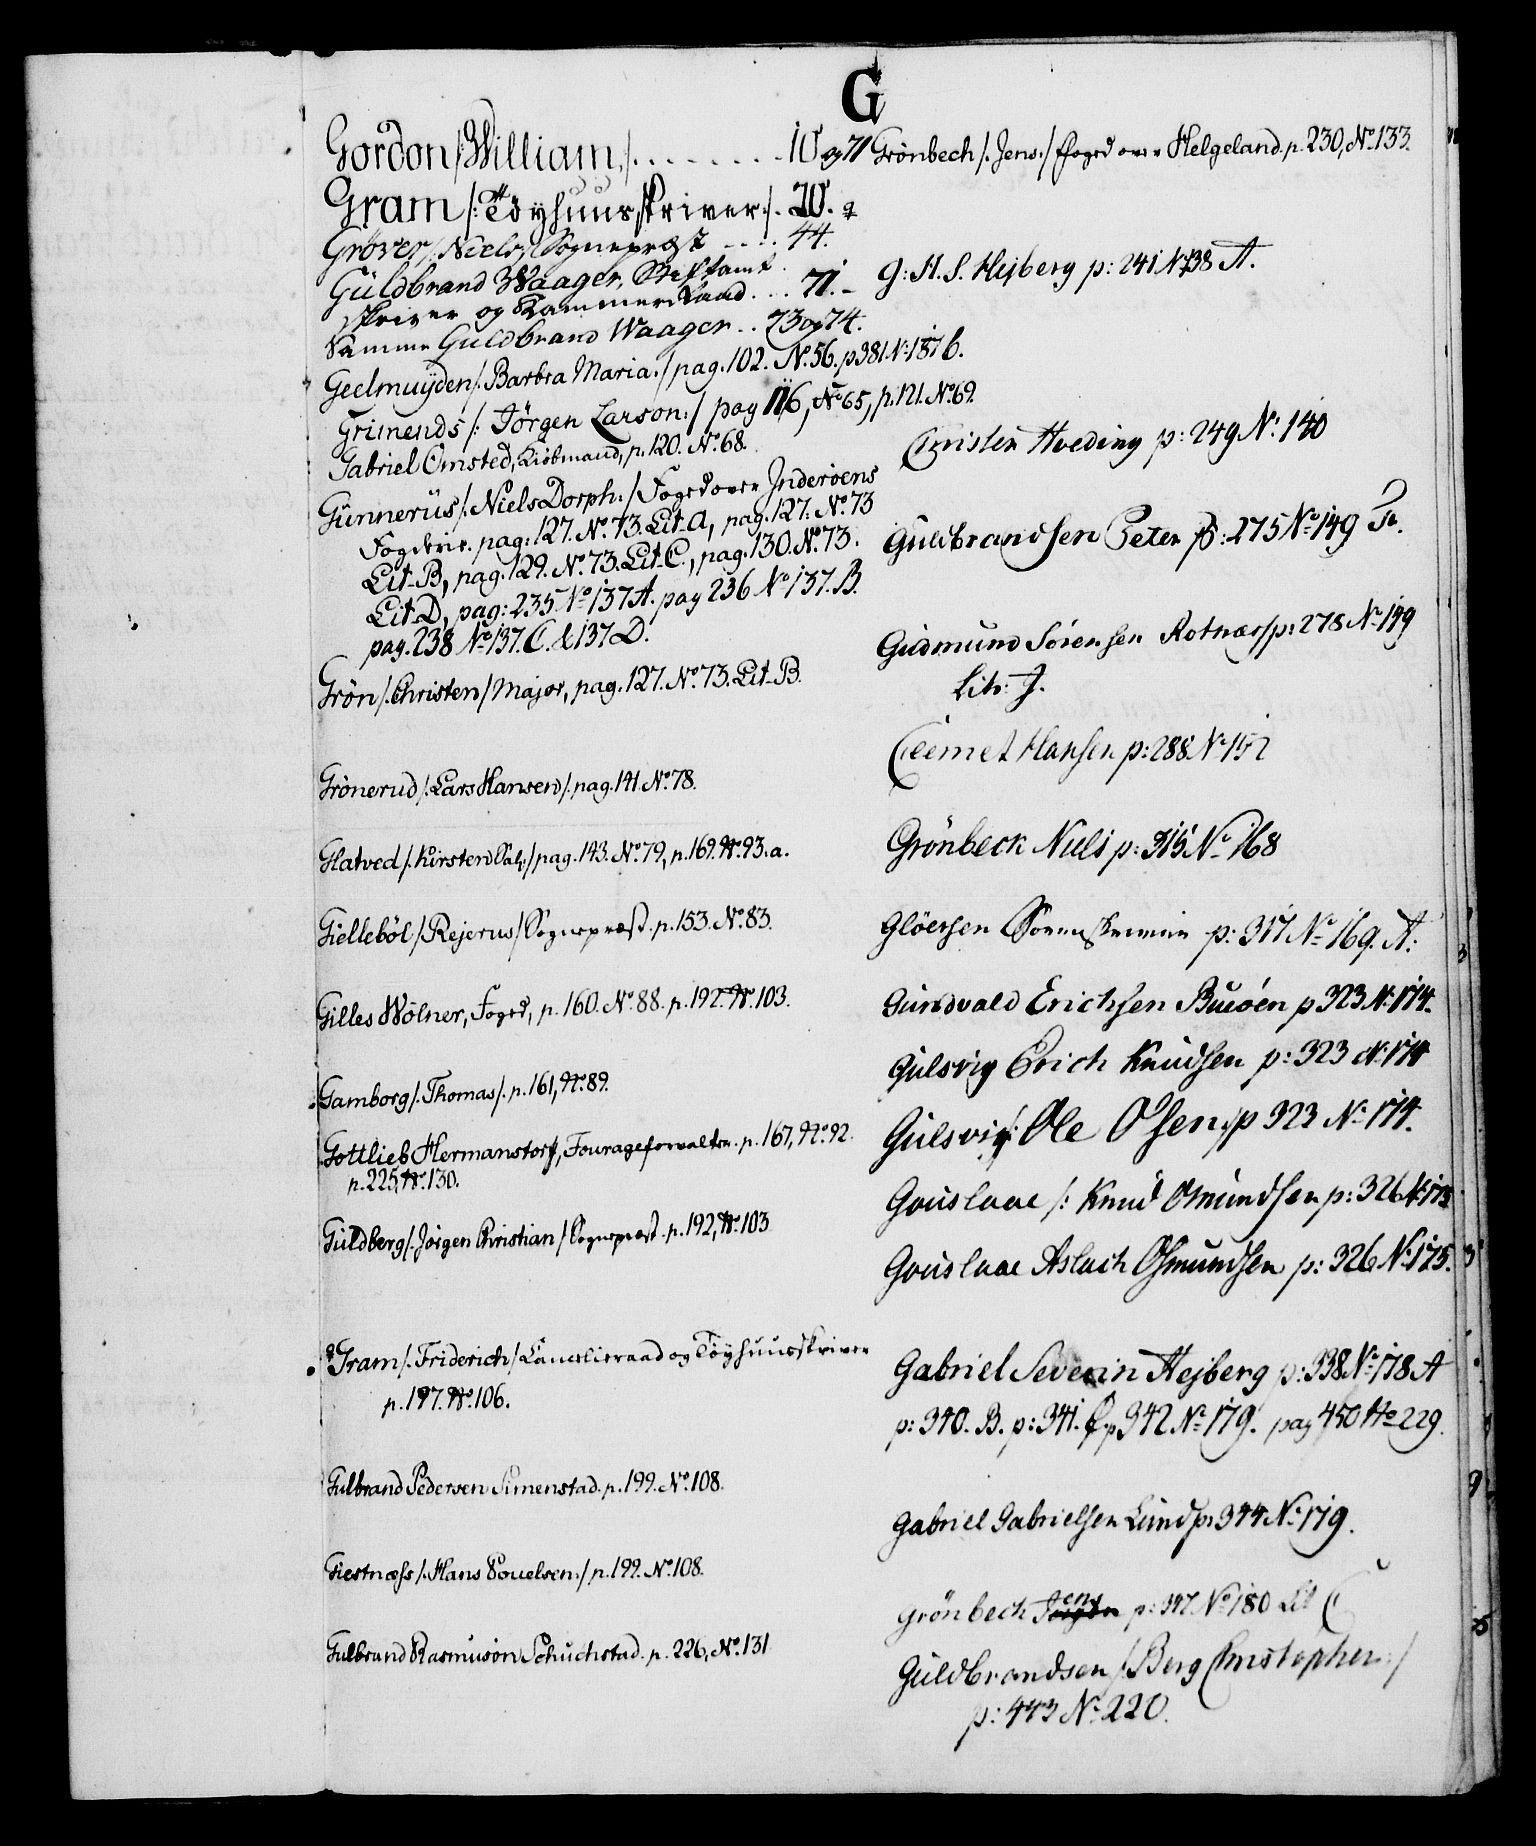 G
Gordon /: William :/ . . . . . . . . 10 og 71
Gram /: Töyhuusskriver :/. 20.
Gröver /: Niels :/ Sognepræst . . . . 44.
Güldbrand Waager, Stiftamt
skriver og Kammer Raad. . . 71. -
Samme Guldbrand Waager . . 73 og 74.
Geelmuÿden /: Barbra Maria :/ pag. 102. No. 56. p 381 No 187 b.
Grimends /: Jörgen Larson :/ pag 116, No 65, p. 121. No 69.
Gabriel Omsted, Kiöbmand, p. 120. No. 68.
Günnerüs /: Niels Dorph :/ Foged over Inderöens
Fogderie. pag. 127. No. 73. Lit. A, pag. 127. No. 73
Lit. B, pag. 129. No. 73. Lit. C., pag. 130. No. 73.
Lit. D, pag: 235 No 137 A. pag 236 No 137. B.
pag. 238 No 137. C. & 137 D.
Grön /: Christen / Major, pag. 127. No. 73. Lit. B.
Grönerud /: Lars Hansen /: pag. 141 No. 78.
Glatved /: Kirsten Sal: / pag. 143. No. 79, p. 169. No. 93. a.
Gielleböl / Rejerus / Sognepræst. p. 153. No. 83.
Gilles Wölner, Foged, p. 160. No. 88. p. 192. No. 103.
Gamborg /: Thomas /: p. 161, No. 89.
Gottlieb Hermanstorf, Fourageforvalter. p. 167, No. 92.
p. 225, No. 130.
Guldberg /: Jörgen Christian / Sognepræst. p. 192, No. 103
Gram /: Friderich / Cancelieraad og Töyhuusskriver
p. 197. No. 106.
Gulbrand Pedersen Simenstad. p. 199. No. 108.
Giestnæss /: Hans Pouelsen :/ p. 199. No. 108.
Gulbrand Rasmuson Schuchstad. p. 226, No. 131
Grönbech /: Jens :/ Foged over Helgeland. p. 230, No. 133.
G: H. S. Hejberg p: 241 No 138 A.
Christen Hveding p: 249 No. 140
Guldbrandsen Peter p: 275 No 149 F.
Gudmund Sörensen Rotnæs p: 278 No 149
Litr: J.
Hansen p: 288 No 152
Grönbeck Niels p: 315 No 168
Glöersen Sorenskriver p: 317 No 169. A:
Gundvald Erichsen Bueöen p 323 No. 174.
Gulsvig Erich Knudsen p: 323 No 174
Gulsvig /: Ole Olsen :/ p 323 No 174.
Gouslaae /: Knud Osmundsen p: 326 No 175
Gouslaae Aslach Osmundsen p: 326 No. 175.
Gabriel Severin Hejberg p: 338 No. 178 A
p: 340. B. p: 341. C. p 342 No 179. pag 450 No 229.
Gabriel Gabrielsen Lund p: 344 No 179.
Grönbech Jens p: 347 No 180 Lit C
Guldbrandsen / Berg Christopher :/
p: 443 No 220.